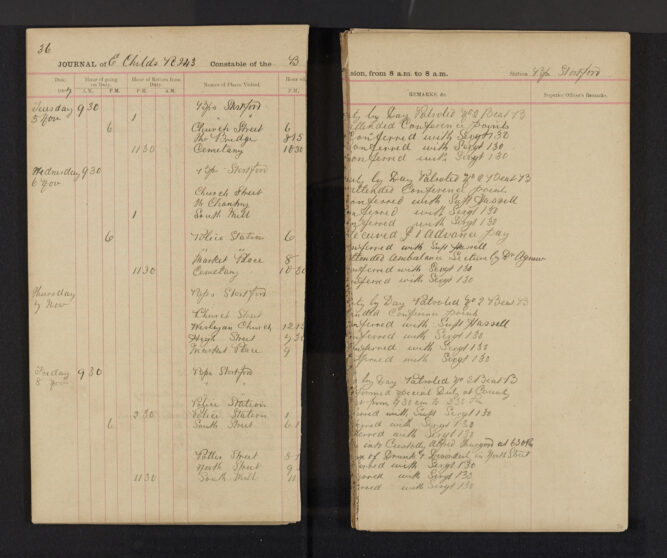 36
JOURNAL of E Childs PC 243 Constable of the B
Date. Hour of going on Duty. Hour of Return from Duty. Names of Places Visited.
A.M. P.M. P.M. A.M.
Tuesday 9 30 Bps Stortford
5 Nov 1
6 Church Street 6
The Bridge 8 15
11 30 Cemetary 10 30
Wednesday 9 30 Bps Stortford
6 Nov
Church Street
Chantry
1 South Mill
6 Police Station 6
Market Place 8
11 30 Cemetary 10 30
Thursday Bps Stortford
7 Nov
Church Street
Wesleyan Church
High Street
Market Place 9
Friday 9 30 Bps Stortford
8 Nov
Police Station
2 30 Police Station 1
6 South Street 6
Potter Street 8
North Street 9
11 30 South Mill 11
sion, from 8 a.m. to 8 a.m. Station Bps Stortford
REMARKS, &c. Superior Officer's Remarks.
by Day Patroled No 2 Beat B
attended Conference points
Conferred with Sergt 130
conferred with Sergt 130
conferred with Sergt 130
by Day Patroled No 2 Beat B
attended Conference points
conferred with Supt Hassell
conferred with Sergt 130
nferred with Sergt 130
received £1 Advance pay
nferred with Supt Hassell
ttended Ambulance Section by Dr Agnew
nferred with Sergt 130
nferred with Sergt 130
by Day Patroled No 2 Beat B
nded Conference points
nferred with Supt Hassell
nferred with Sergt 130
nferred with Sergt 130
nferred with Sergt 130
by Day Patroled No 2 Beat B
formed special Duty at County
from 9 30 am to 2 30 Pm
rred with Supt Sergt 130
rred with Sergt 130
ferred with Sergt 130
into Custody Alfred at 6 30 Pm
of Drunk & Disorderly in North Street
ferred with Sergt 130
ferred with Sergt 130
ferred with Sergt 130